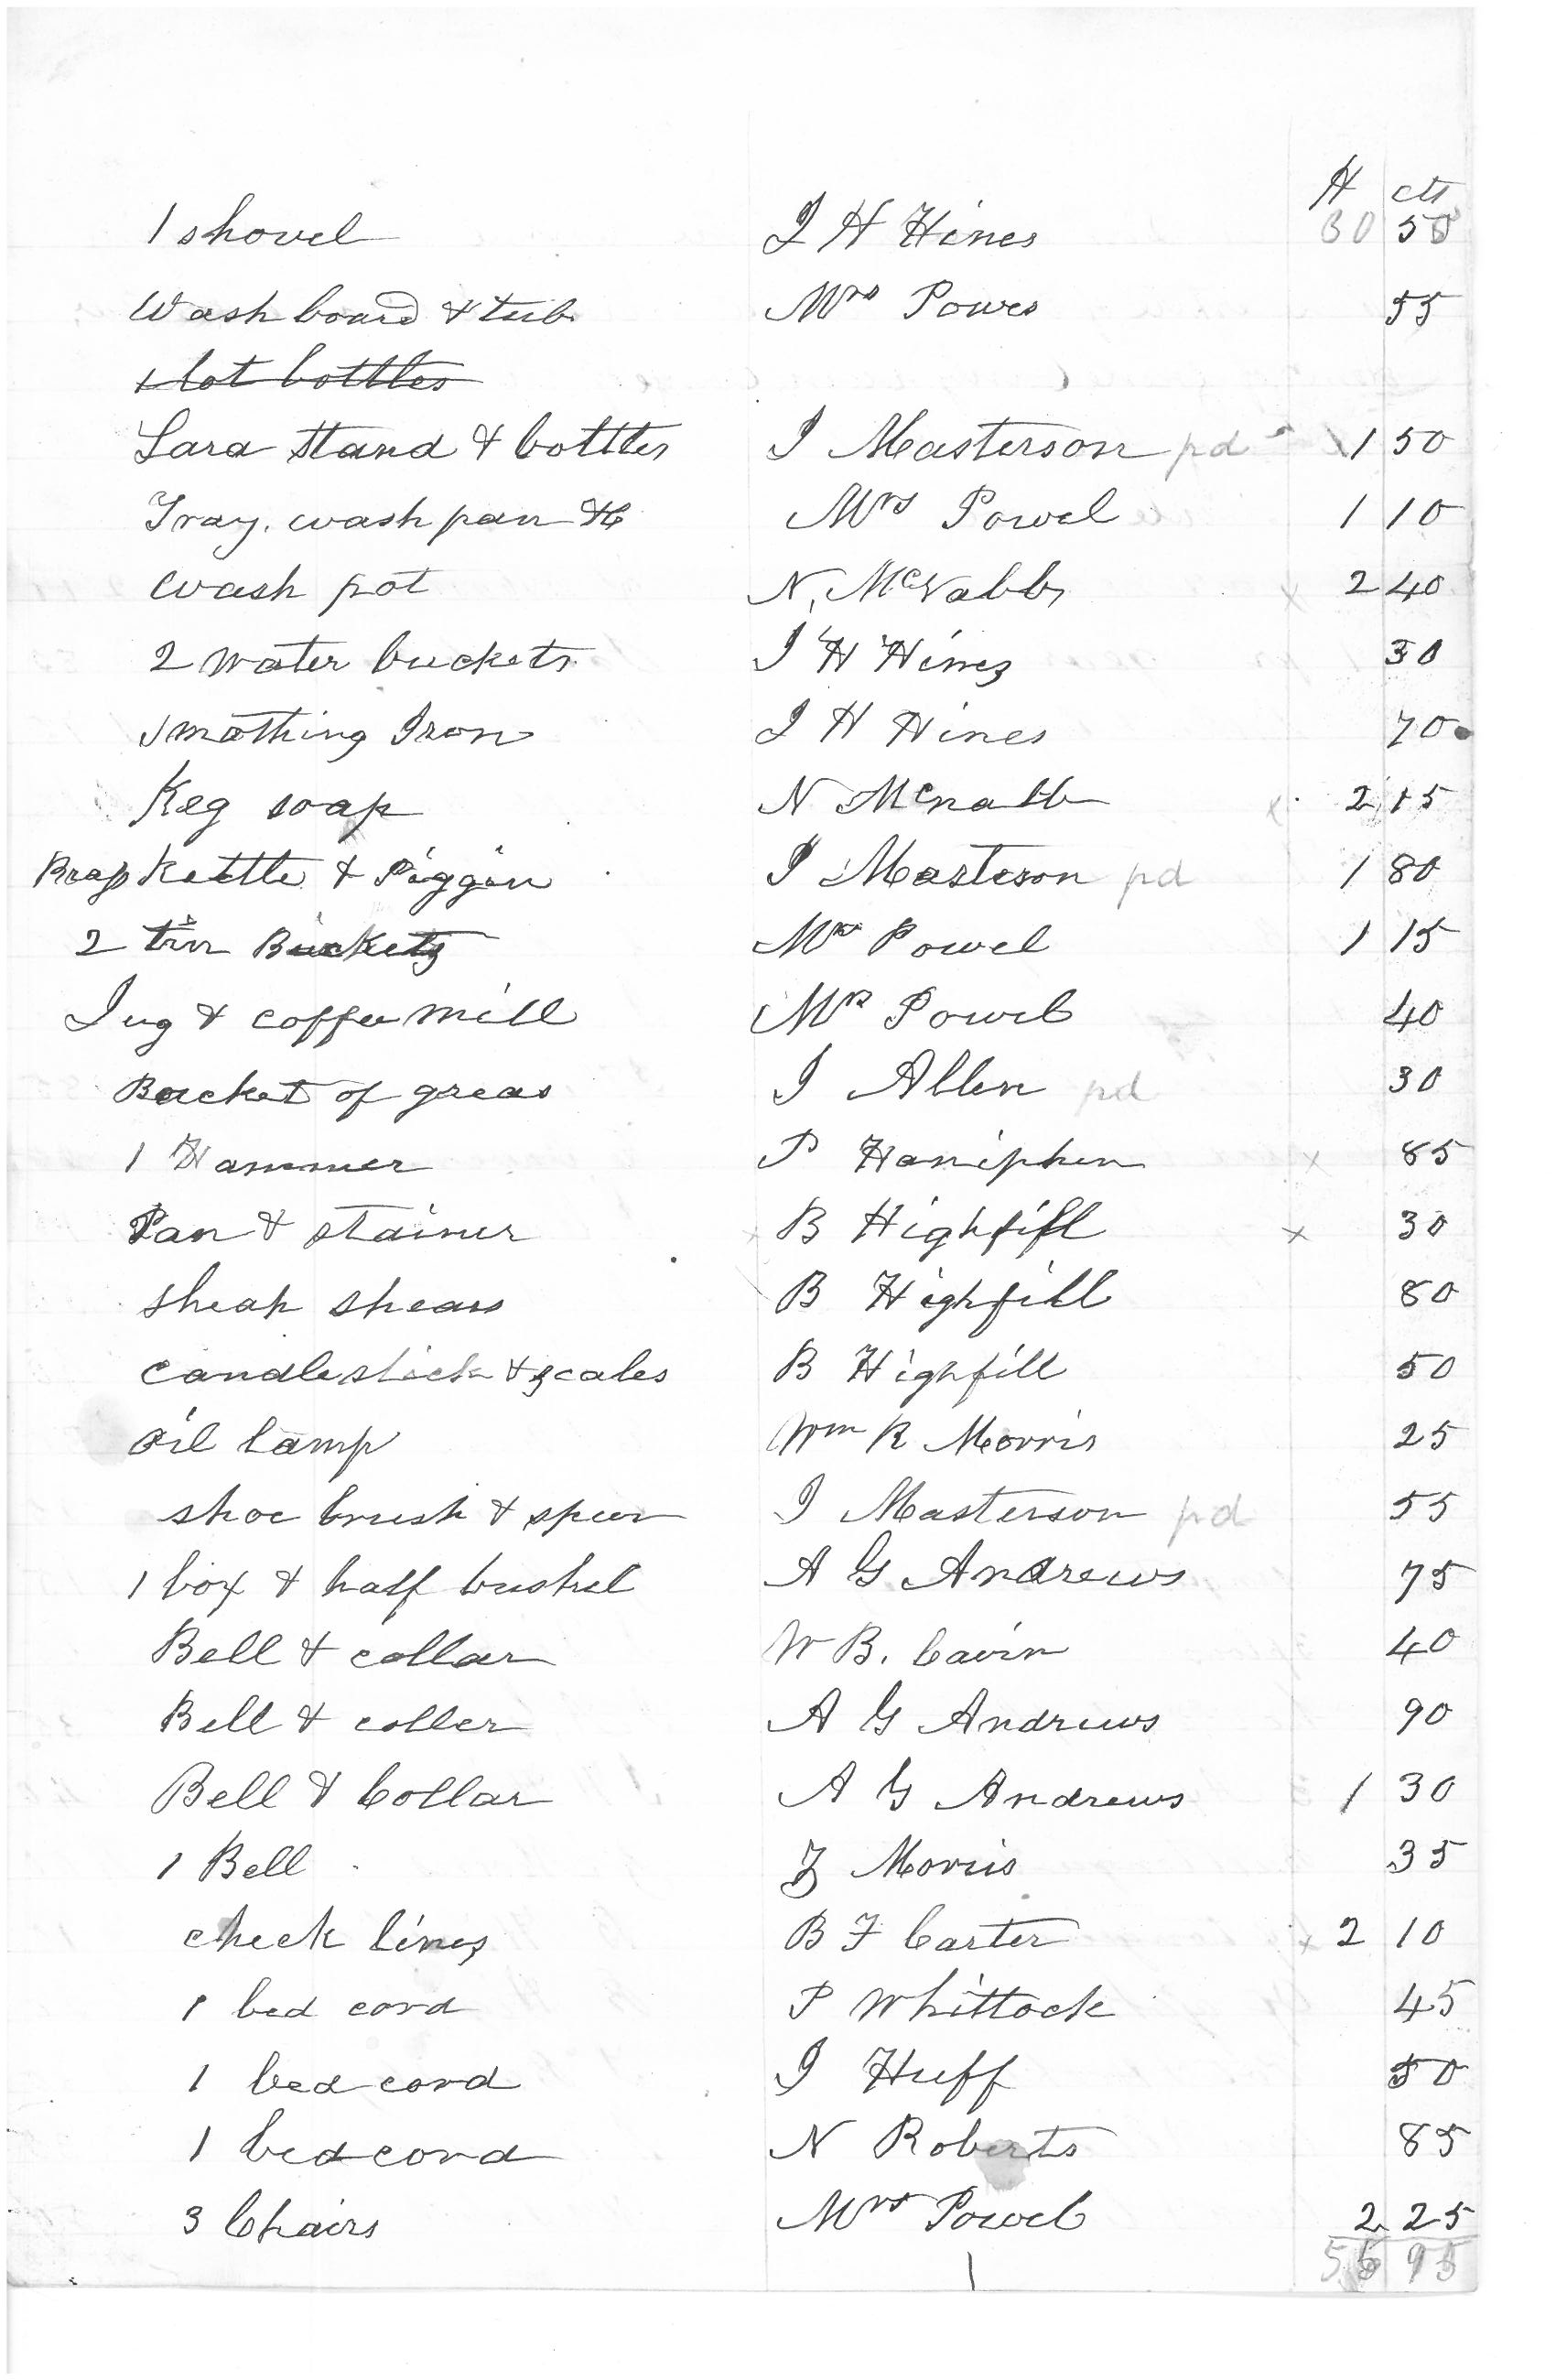 $ cts
1 shovel J H Hines 30 50
Wash board & tub Mrs Powes 55
1 lot bottles
Lard stand & bottles J Masterson pd 1 50
Tray, wash pan &c Mrs Powel 1 10
Wash pot N. McNabb 2 40
2 water buckets J H Hines 30
smothing Iron J H Hines 70
Keg soap N McNabb 2 15
Brass Kettle & Piggin J Masterson pd 1 80
2 tin Buckets Mrs Powel 1 15
Jug & coffee mill Mrs Powel 40
Bucket of greas J Allen pd 30
1 Hammer P Haniphen x 85
Pan & stainer B Highfill x 30
sheap shears B Highfill 80
candlestick & scales B Highfill 50
Oil lamp Wm R Morris 25
shoe brush & spur J Masterson pd 55
1 box & half bushel A G Andrews 75
Bell & collar W B. Cavin 40
Bell & coller A G Andrews 90
Bell & Collar A G Andrews 1 30
1 Bell Z Morris 35
check lines B F Carter x 2 10
1 bed cord P Whittock 45
1 bed cord J Huff 50
1 bed cord N Roberts 85
3 Chairs Mrs Powel 2 25
95